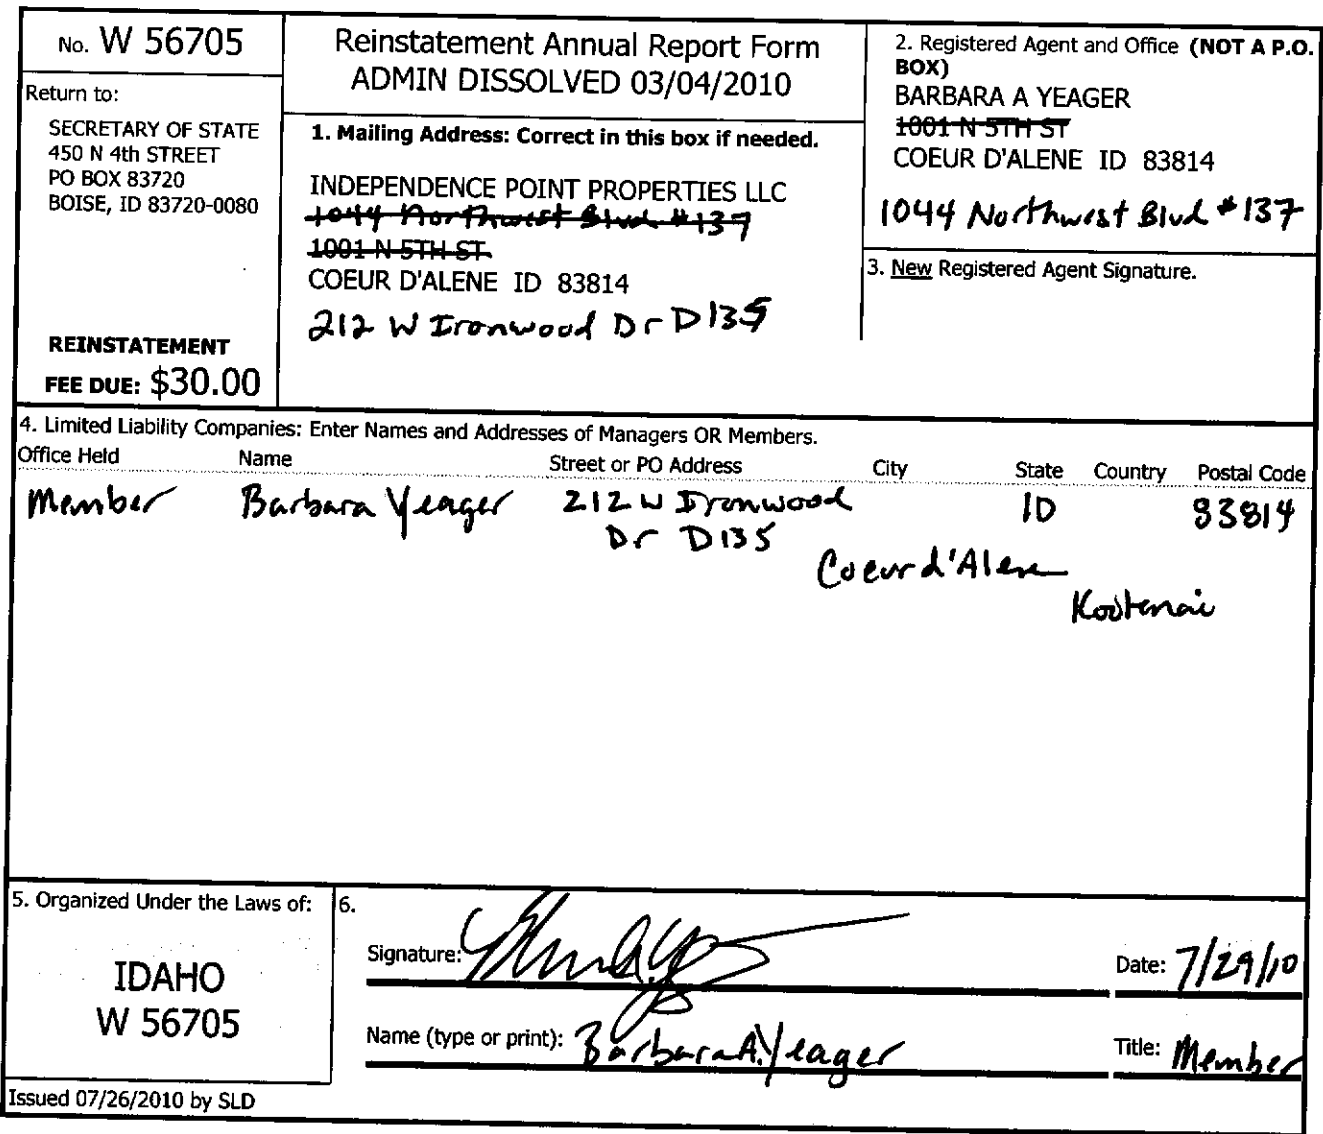 No. W 56705
Return to:
SECRETARY OF STATE
450 N 4th STREET
PO BOX 83720
BOISE, ID 83720-0080
REINSTATEMENT
FEE DUE: $30.00
Reinstatement Annual Report Form
ADMIN DISSOLVED 03/04/2010
1. Mailing Address: Correct in this box if needed.
INDEPENDENCE POINT PROPERTIES LLC
1044 Northwest Blvd #137
1001 N 5TH ST
COEUR D'ALENE ID 83814
212 W Ironwood Dr D135
2. Registered Agent and Office (NOT A P.O.
BOX)
BARBARA A YEAGER
1001 N 5TH ST
COEUR D'ALENE ID 83814
1044 Northwest Blvd #137
3. New Registered Agent Signature.
4. Limited Liability Companies: Enter Names and Addresses of Managers OR Members.
Office Held Name Street or PO Address City State Country Postal Code
Member Barbara Yeager 212 W Ironwood ID 83814
Dr D135
Coeur d'Alene
Kootenai
5. Organized Under the Laws of:
IDAHO
W 56705
6.
Signature:
Date: 7/29/10
Name (type or print): Barbara A. Yeager
Title: Member
Issued 07/26/2010 by SLD